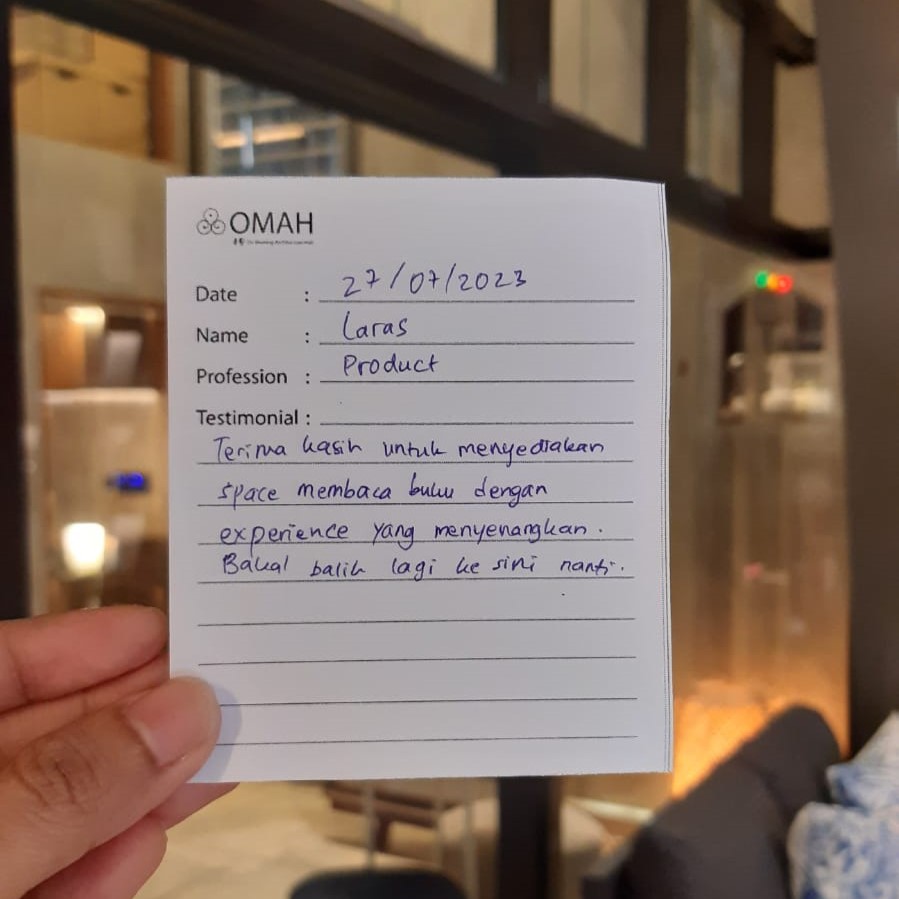 OMAH
Date : 27/07/2023
Name : Laras
Profession : Product
Testimonial :
Terima kasih untuk menyediakan
space membaca buku dengan
experience yang menyenangkan.
Bakal balik lagi ke sini nanti.